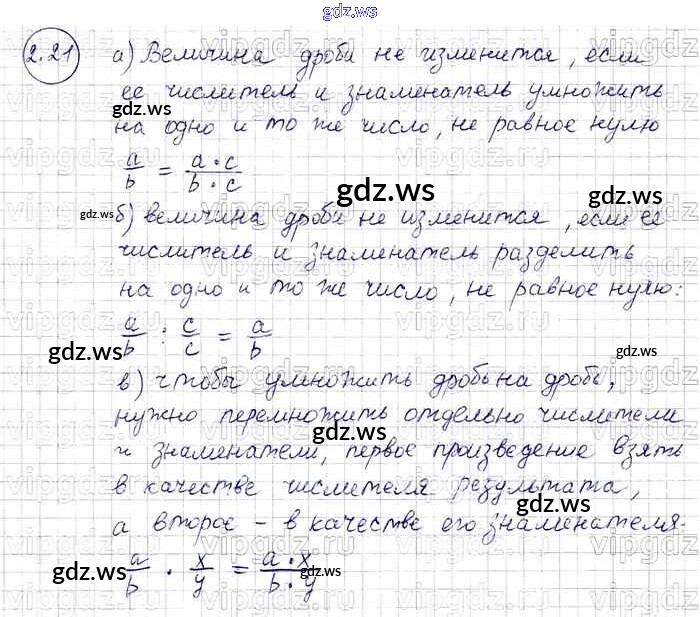 gdz.ws
2.21 а) Величина дроби не изменится, если
ее числитель и знаменатель умножить
на одно и то же число, не равное нулю
a/b = a·c/b·c
б) величина дроби не изменится, если ее
числитель и знаменатель разделить
на одно и то же число, не равное нулю:
a/b : c/c = a/b
в) чтобы умножить дробь на дробь,
нужно перемножить отдельно числители
и знаменатели, первое произведение взять
в качестве числителя результата,
а второе – в качестве его знаменателя.
a/b · x/y = a·x/b·y
gdz.ws
gdz.ws
gdz.ws
gdz.ws
gdz.ws
gdz.ws
gdz.ws
gdz.ws
gdz.ws
gdz.ws